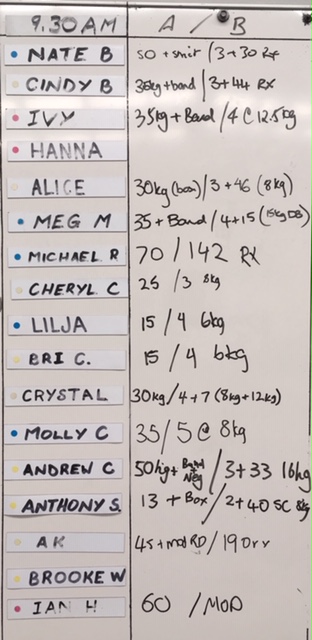 9.30AM A / B
NATE B 50 + shirt / 3+30 Rx
CINDY B 35kg + band / 3+44 RX
IVY 35kg + Band / 4 @ 12.5kg
HANNA
ALICE 30kg (box) / 3 + 46 (8kg)
MEG M 35 + Band / 4+15 (15kg DB)
MICHAEL R 70 / 142 RX
CHERYL C 25 / 3 8kg
LILJA 15 / 4 6kg
BRI C. 15 / 4 6kg
CRYSTAL 30kg / 4 + 7 (8kg + 12kg)
MOLLY C 35 / 5 @ 8kg
ANDREW C 50kg + Band + Neg / 3+33 16kg
ANTHONY S. 13 + Box / 2+40 SC 8kg
AK 45 + mod RD /
BROOKE W
IAN H 60 / MOD